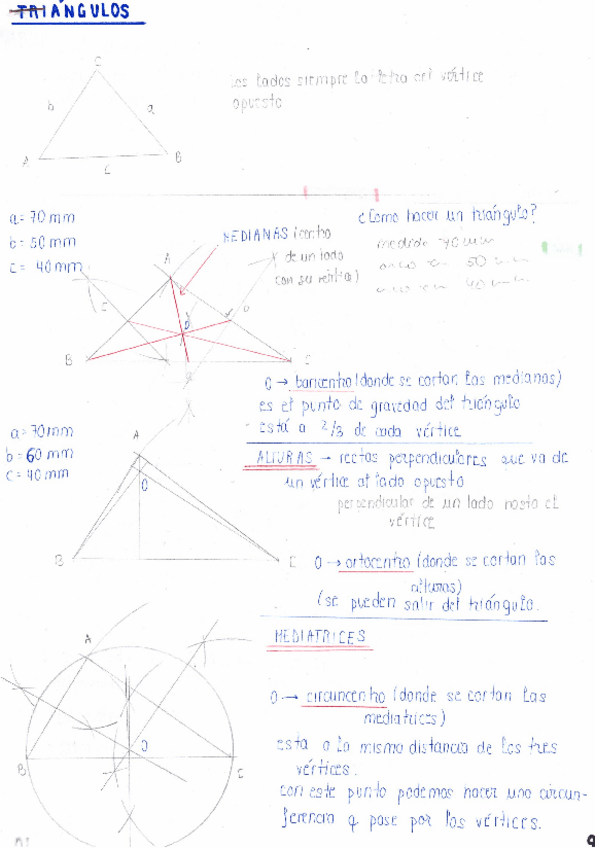 TRIÁNGULOS
C
b
a
A
B
c
los lados siempre la letra del vértice
opuesto
a = 70 mm
b = 50 mm
c = 40 mm
¿Como hacer un triángulo?
medida 70 mm
arco con 50 mm
arco con 40 mm
MEDIANAS (centro
de un lado
con su vértice)
A
O
B
C
O → baricentro (donde se cortan las medianas)
es el punto de gravedad del triángulo
está a 2/3 de cada vértice
a = 70mm
b = 60 mm
c = 40 mm
A
O
B
C
ALTURAS → rectas perpendiculares que va de
un vértice al lado opuesto
perpendicular de un lado hasta el
vértice
O → ortocentro (donde se cortan las
alturas)
(se pueden salir del triángulo.
MEDIATRICES
A
O
B
C
O → circuncentro (donde se cortan las
mediatrices)
esta a la misma distancia de los tres
vértices.
con este punto podemos hacer una circun-
ferencia q pase por los vértices.
9